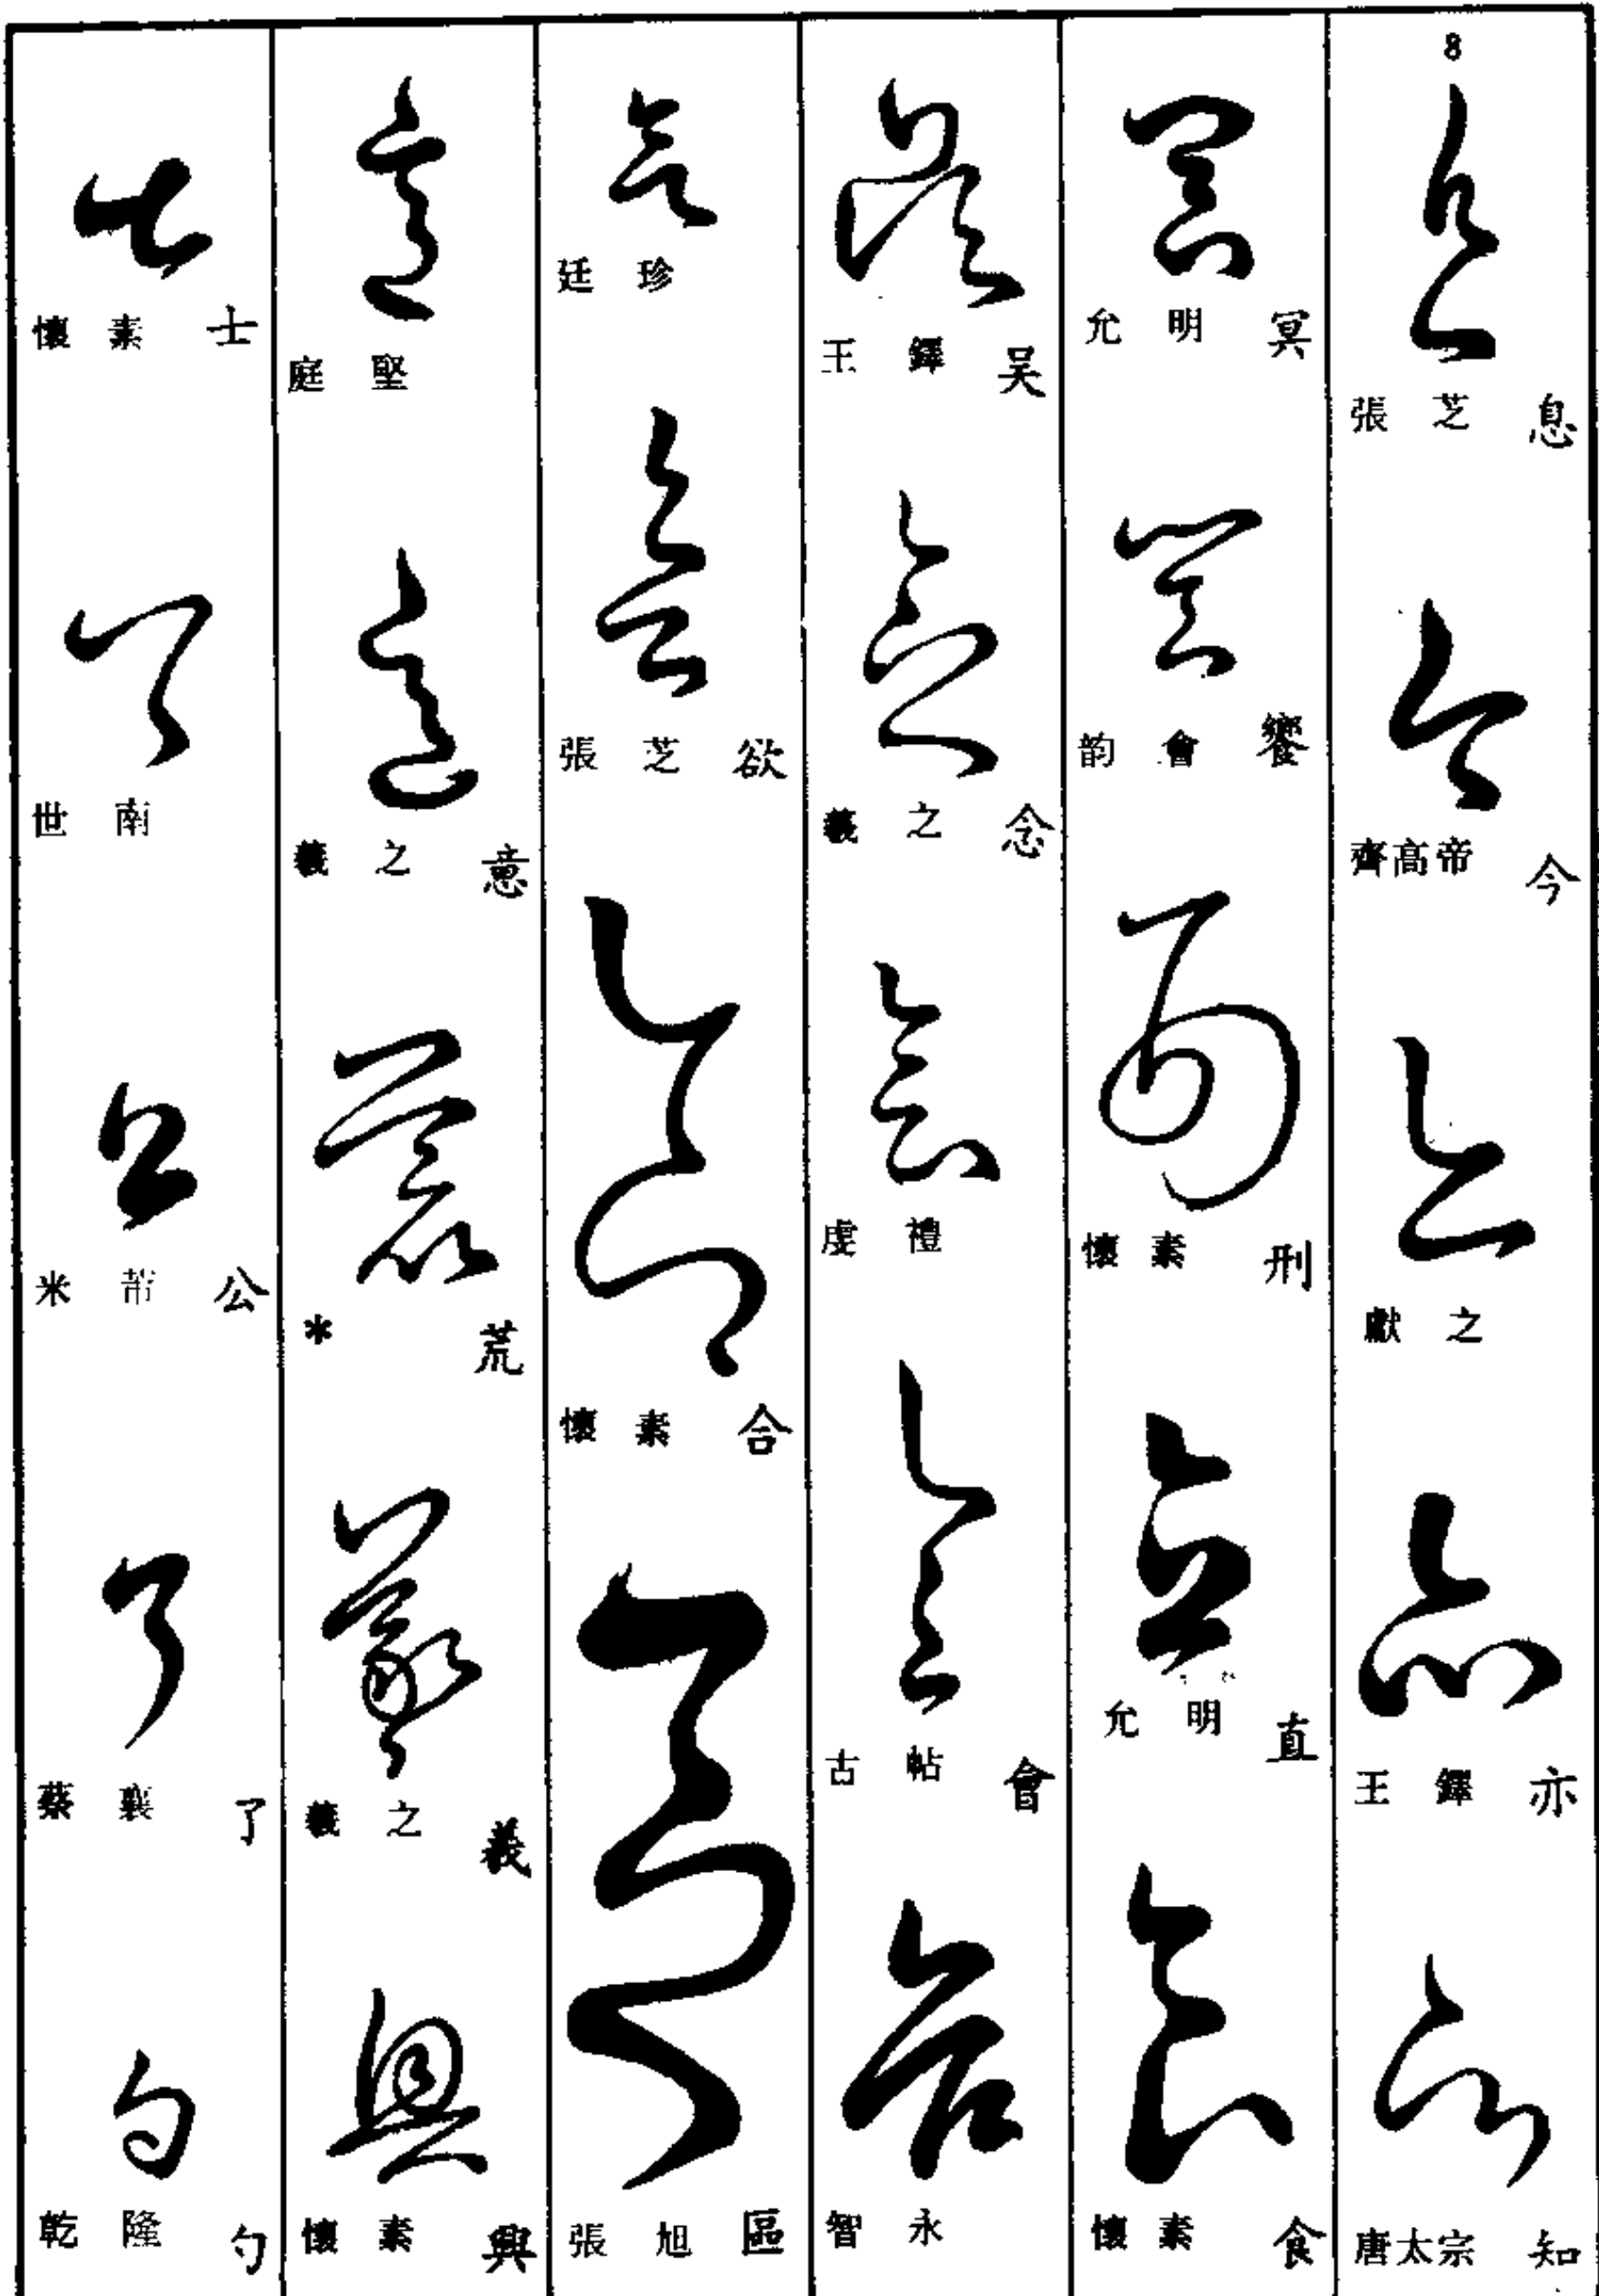 8
張芝 息
齊高帝 今
獻之
王鐸 亦
唐太宗 知
允明 冥
韵會 饗
懷素 刑
允明 直
懷素 食
王鐸 吴
羲之 念
虔禮
古帖 會
智永
廷珍
張芝 欲
懷素 合
張旭 區
庭堅
羲之 意
* 荒
羲之 義
懷素 興
懷素 士
世南
米芾 公
蔡襄 了
乾隆 勺